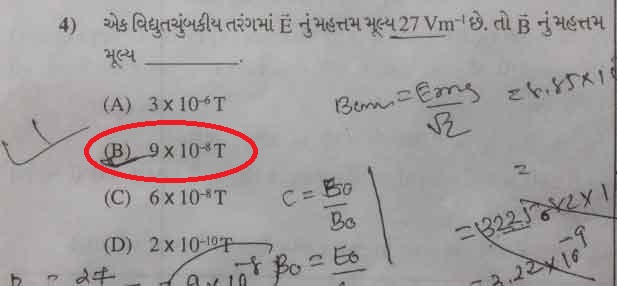 4) એક વિદ્યુતચુંબકીય તરંગમાં E⃗ નું મહત્તમ મૂલ્ય 27 Vm⁻¹ છે. તો B⃗ નું મહત્તમ
મૂલ્ય ________.
(A) 3 x 10⁻⁶ T
(B) 9 x 10⁻⁸ T
(C) 6 x 10⁻⁸ T
(D) 2 x 10⁻¹⁰ T
= Erms / √2
= 8.85 × 1
C = E₀ / B₀
B₀ = E₀
27
9 × 10⁻⁸
=
= 3.22 × 10⁻⁹